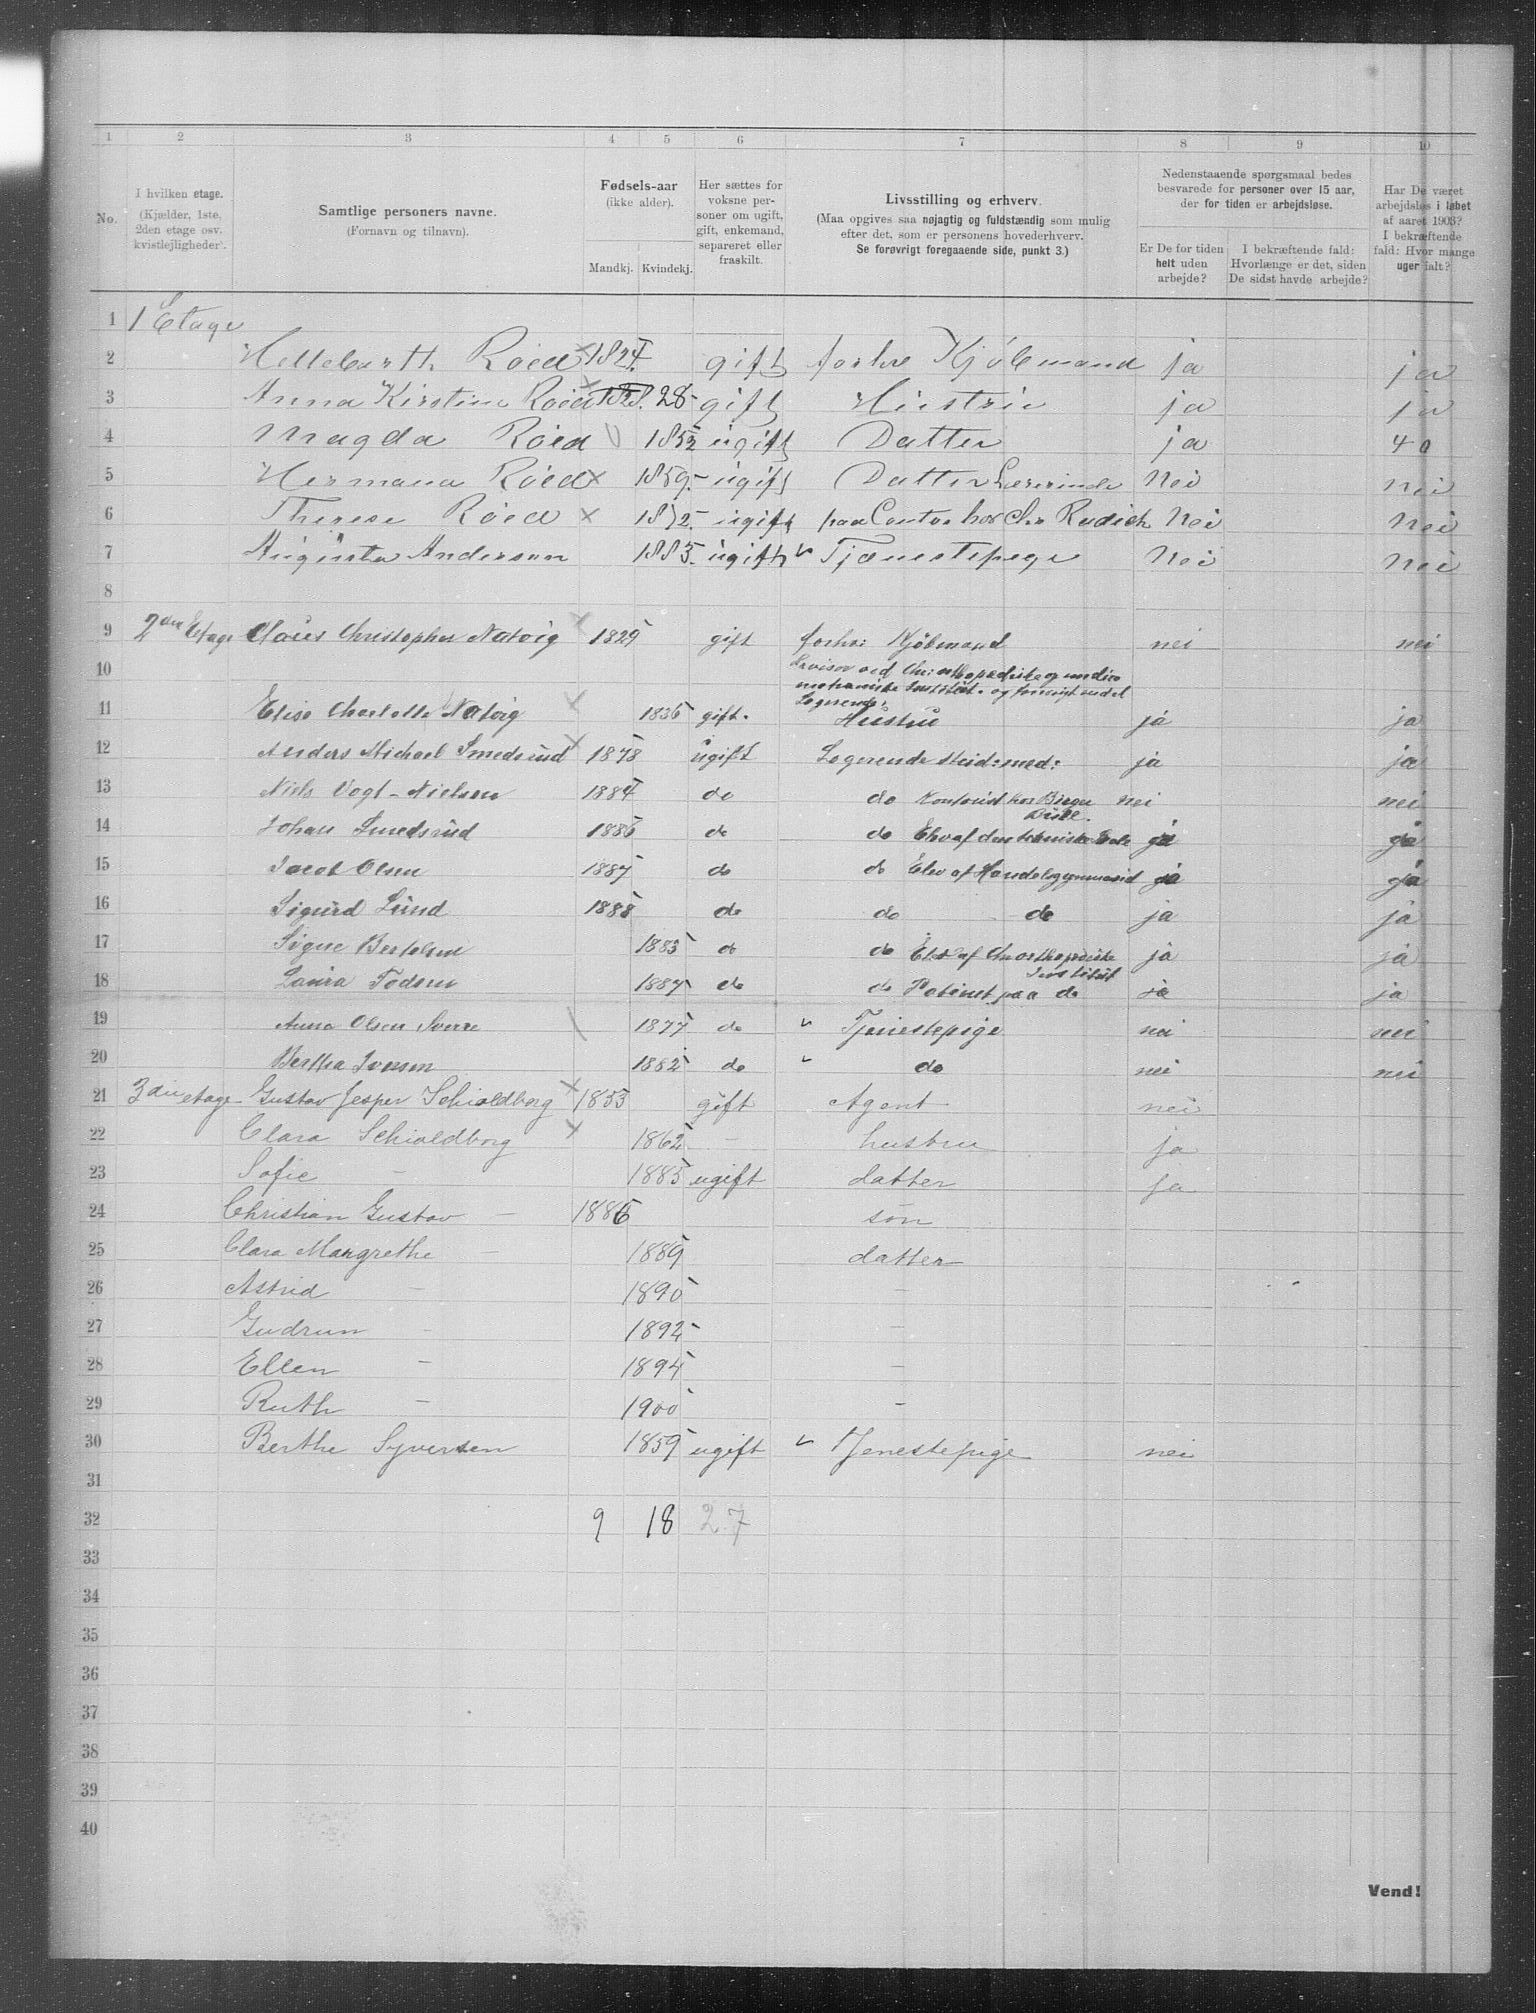 1 2 3 4 5 6 7 8 9 10
No.
I hvilken etage.
(Kjælder, 1ste,
2den etage osv.
kvistlejligheder).
Samtlige personers navne.
(Fornavn og tilnavn).
Fødsels-aar
(ikke alder).
Mandkj. Kvindekj.
Her sættes for
voksne per-
soner om ugift,
gift, enkemand,
separeret eller
fraskilt.
Livsstilling og erhverv.
(Maa opgives saa nøjagtig og fuldstændig som mulig
efter det, som er personens hovederhverv.
Se forøvrigt foregaaende side, punkt 3.)
Nedenstaaende spørgsmaal bedes
besvarede for personer over 15 aar,
der for tiden er arbejdsløse.
Er De for tiden
helt uden
arbejde?
I bekræftende fald:
Hvorlænge er det, siden
De sidst havde arbejde?
Har De været
arbejdsløs i løbet
af aaret 1903?
I bekræftende
fald: Hvor mange
uger ialt?
1 1 Etage
2 Hellebarth Röed 1824 gift forhv Kjöbmand ja ja
3 Anna Kirstine Röed 28 gift Hustru ja ja
4 Magda Röed 1852 ugift Datter ja 40
5 Hermana Röed 1859 ugift Datter Lærerinde Nei nei
6 Therese Röed 1872 ugift paa Contor hos Chr Rudich Nei Nei
7 Augusta Andersen 1883 ugift Tjænestepege Nei Nei
8
9 2den Etage Claus Christopher Natvig 1829 gift forhv: Kjöbmand nei nei
10 Revisor ved Chr: orthopædiske og medico
mekaniske Institut. og forøvrigt ved
Logerende:
11 Elise Charlotte Natvig 1836 gift. Hustru ja ja
12 Anders Michael Smedsrud 1878 ugift Logerende stud: med: ja ja
13 Niels Vogt-Nielsen 1884 do do Kontorist hos Birger nei nei
14 Johan Smedsrud 1886 do do Elev af den tekniske Skole ja ja
15 Jacob Olsen 1887 do do Elev af Handelsgymnasid ja ja
16 Sigurd Lund 1888 do do do ja ja
17 Signe Bertelsen 1883 do do Elev af Chr orthopædiske
Institut ja ja
18 Laura Todsen 1887 do do Patient paa do ja ja
19 Anna Olsen Sverre 1877 do Tjenestepige nei nei
20 Bertha Iversen 1882 do do nei nei
21 3die etage Gustav Jesper Schioldborg 1853 gift Agent nei
22 Clara Schioldborg 1862 - hustru ja
23 Sofie - 1885 ugift datter ja
24 Christian Gustav - 1886 søn
25 Clara Margrethe - 1889 datter
26 Astrid - 1890 -
27 Gudrun - 1892 -
28 Ellen - 1894 -
29 Ruth - 1900 -
30 Berthe Syversen 1859 ugift tjenestepige nei
31
32 9 18 27
33
34
35
36
37
38
39
40
Vend!